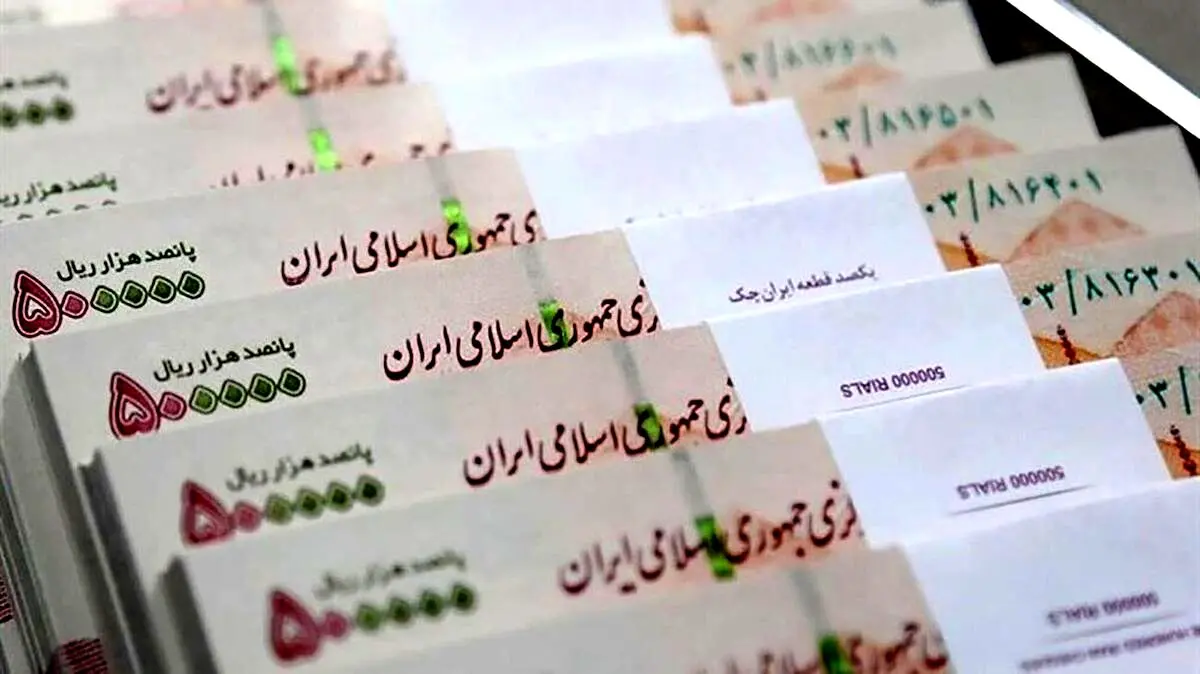 جمهوری اسلامی ایران
۰۳/۸۱۶۶۰۱
پانصد هزار ریال
۰۳/۸۱۶۵۰۱
پانصد هزار ریال
۵۰۰۰۰۰
جمهوری اسلامی ایران
۰۳/۸۱۶۴۰۱
یکصد قطعه ایران چک
پانصد هزار ریال
۵۰۰۰۰۰
زی جمهوری اسلامی ایران
۰۳/۸۱۶۳۰۱
500000 RIALS
پانصد هزار ریال
۵۰۰۰۰۰
زی جمهوری اسلامی ایران
۰۳/
500000 RIALS
پانصد هزار ریال
۵۰۰۰۰۰
زی جمهوری اسلامی ایران
500000 RIALS